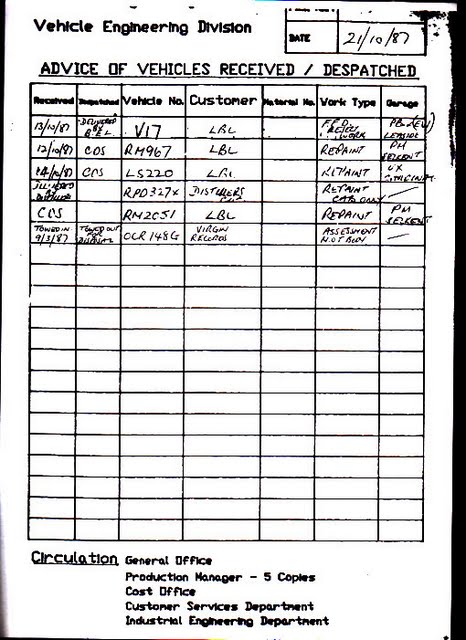 Vehicle Engineering Division
DATE 21/10/87
ADVICE OF VEHICLES RECEIVED / DESPATCHED
Received Despatched Vehicle No. Customer Material No. Work Type Garage
13/10/87 DELIVERED V17 LBL WORK LEASIDE
12/10/87 COS RM967 LBL REPAINT PM SELKENT
14/10/87 COS LS220 LBL REPAINT UX
RPD327X DISTILLERS REPAINT CAB ONLY —
COS RM2051 LBL REPAINT PM SELKENT
TOWED IN 9/3/87 TOWED OUT FOR DISPOSAL OCR148G VIRGIN RECORDS ASSESSMENT NOT BODY —
Circulation General Office
Production Manager - 5 Copies
Cost Office
Customer Services Department
Industrial Engineering Department